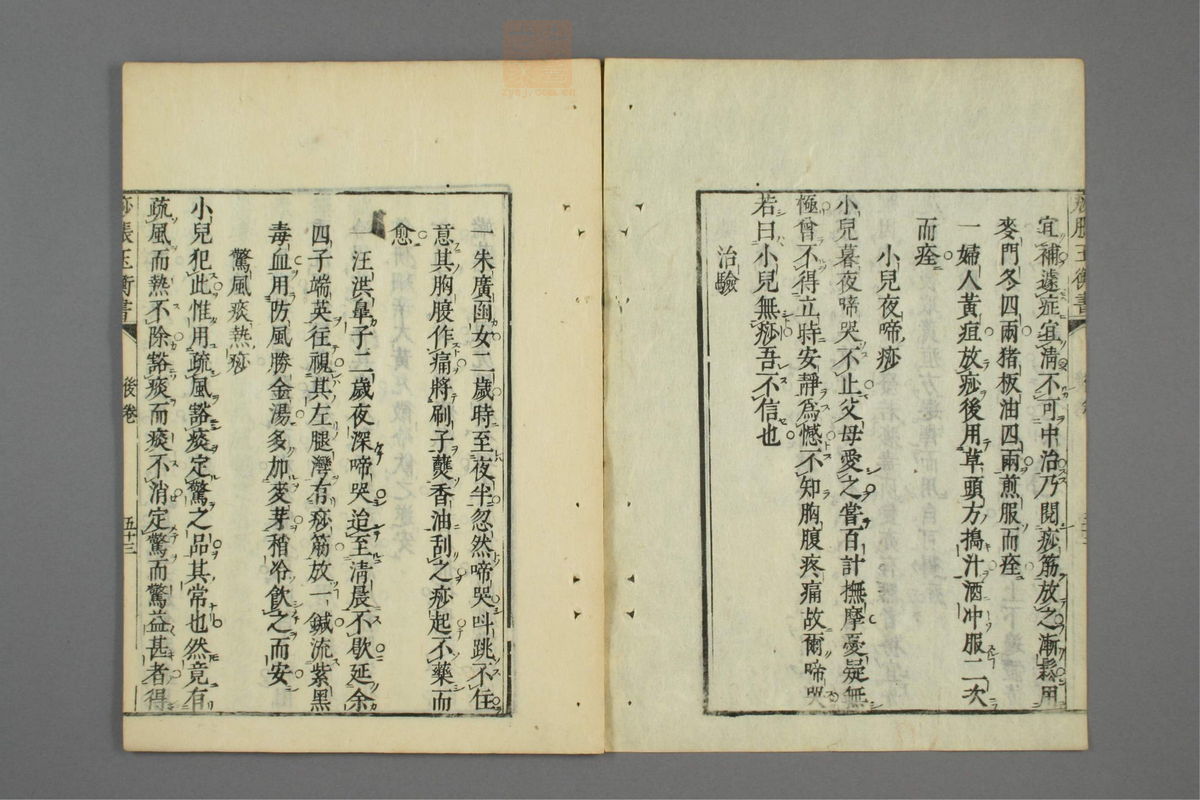 宜補遽症宜清不可中治乃閱痧筋放之漸鬆用
麥門冬四兩猪板油四兩煎服而痊
一婦人黃疸放痧後用草頭方搗汁酒冲服二次
而痊
小兒夜啼痧
小兒暮夜啼哭不止父母愛之嘗百計撫摩憂疑無
極曾不得立時安靜爲憾不知胸腹疼痛故爾啼哭
若曰小兒無痧吾不信也
治驗
一朱廣函女二歲時至夜半忽然啼哭呌跳不住
意其胸腹作痛將刷子蘸香油刮之痧起不藥而
愈
一汪洪臯子二歲夜深啼哭迨至清晨不歇延余
四子端英往視其左腿灣有痧筋放一鍼流紫黑
毒血用防風勝金湯多加麥芽稍冷飲之而安
驚風痰熱痧
小兒犯此惟用疏風豁痰定驚之品其常也然竟有
疏風而熱不除豁痰而痰不消定驚而驚益甚者得
痧脹玉衡書
後卷
五十三